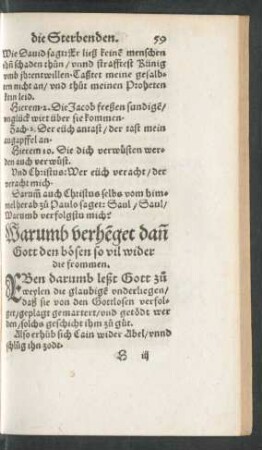 die Sterbenden. 59
Wie Dauid sagt: Er ließ keinē menschen
jhn schaden thůn / vnnd straffrest Künig
vmb jhrentwillen. Tastet meine gesalb-
ten nicht an / vnd thůt meinen Propheten
kein leid.
Hierem. 2. Die Jacob freßen sundigē/
vnglück wirt über sie kommen.
Zach. 2. Der eüch antast / der tast mein
augapffel an.
Hierem. 30. Die dich verwüsten wer-
den auch verwüst.
Vnd Christus: Wer eüch veracht / der
veracht mich.
Darum̄ auch Christus selbs vom him-
mel herab zů Paulo saget: Saul / Saul/
Warumb verfolgstu mich?
Warumb verhēget dañ
Gott den bösen so vil wider
die frommen.
EBen darumb leßt Gott zů
weylen die glaubigē vnderliegen/
daß sie von den Gottlosen verfol-
get / geplagt gemartert / vnd getödt wer
den / solchs geschicht jhn zů gůt.
Also erhůb sich Cain wider Abel / vnnd
schlůg jhn zodt.
H iij